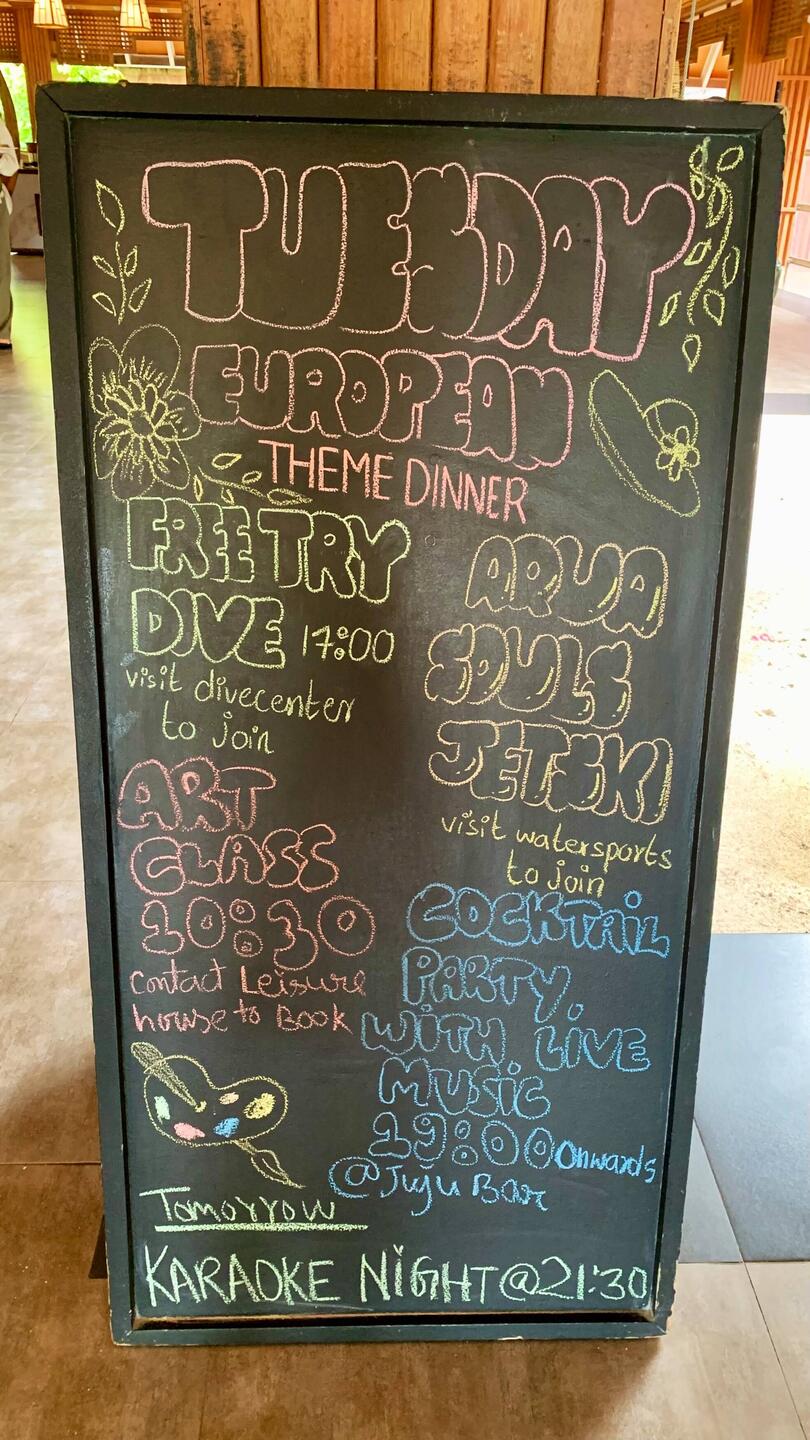 TUESDAY
EUROPEAN
THEME DINNER
FREE TRY
DIVE 17:00
visit divecenter
to join
ARUA
SOULS
JETSKI
visit watersports
to join
ART
CLASS
10:30
contact Leisure
house to Book
COCKTAIL
PARTY,
WITH LIVE
MUSIC
19:00 Onwards
@Juju Bar
Tomorrow
KARAOKE NIGHT@21:30